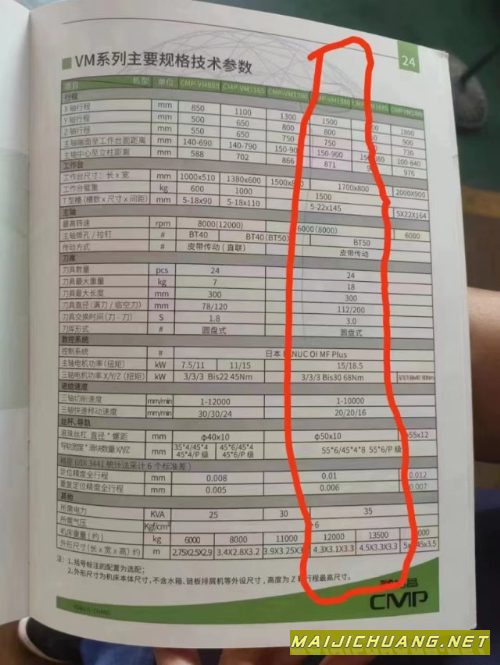 VM系列主要规格技术参数
24
项目 机型 单位
行程
X轴行程 mm 850 1100 1300 1500
Y轴行程 mm 500 600 800 800 900
Z轴行程 mm 550 650 750 750
主轴端面至工作台面距离 mm 140-690 140-790 150-900 100-840
主轴中心至立柱距离 mm 588 702 866 871 976
工作台
工作台尺寸：长x宽 mm 1000x510 1380x600 1700x800 2000x900
工作台载重 kg 600 1000 1500
T型槽（槽数x尺寸x间距） mm 5-18x90 5-18x110 5-22x145 5X22X164
主轴
最高转速 rpm 8000(12000) 6000(8000) 6000
主轴锥孔/拉钉 # BT40 BT40 (BT50) BT50
传动方式 # 皮带传动（直联） 皮带传动
刀库
刀具数量 pcs 24 24
刀具最大重量 kg 7 18
刀具最大长度 mm 300 300
刀具直径（满刀/临空刀） mm 78/120 112/200
刀具交换时间（刀-刀） S 1.8 3.0
刀库形式 # 圆盘式 圆盘式
数控系统
控制系统 # 日本 NUC OI MF Plus
主轴电机功率（扭矩） kW 7.5/11 11/15 15/18.5
三轴电机功率X/Y/Z（扭矩） kW 3/3/3 Bis22 45Nm 3/3/3 Bis30 68Nm
进给速度
三轴切削速度 mm/min 1-12000 1-10000
三轴快速移动速度 mm/min 30/30/24 20/20/16
丝杆、导轨
滚珠丝杠 直径*螺距 mm φ40x10 φ50x10 φ55x12
35*4/45*4 45*6/45*4 55*6/45*4*8 55*6/G/P级
45*4/P级 45*6/P级
定位精度全行程 mm 0.008 0.01 0.012
重复定位精度全行程 mm 0.005 0.006 0.007
其他
所需电力 KVA 25 30 35
所需气压 Kgf/cm² 6
机床重量（约） kg 6000 8000 11000 12000 13500
外形尺寸（长x宽x高）约 m 2.75X2.5X2.9 3.4X2.8X3.2 4.3X3.1X3.3 4.5X3.3X3.3
注：1.括号标注的配置为选配；
2.外形尺寸为机床本体尺寸，不含水箱、链板排屑机等外设尺寸，高度为Z轴行程最高尺寸。
CMP
MAIJICHUANG.NET